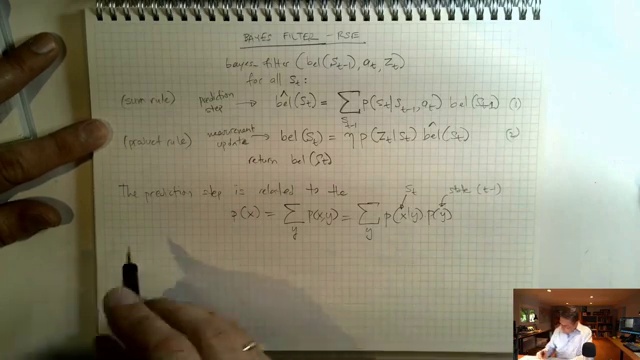 BAYES FILTER - RSE
bayes-filter (bel(S_{t-1}), a_t, Z_t)
for all S_t:
(sum rule) prediction step → b̂el(S_t) = ∑_{S_{t-1}} p(S_t|S_{t-1}, a_t) bel(S_{t-1}) (1)
(product rule) measurement update → bel(S_t) = η p(Z_t|S_t) b̂el(S_t) (2)
return bel(S_t)
The prediction step is related to the
S_t state (t-1)
p(x) = ∑_y p(x,y) = ∑_y p(x|y) p(y)